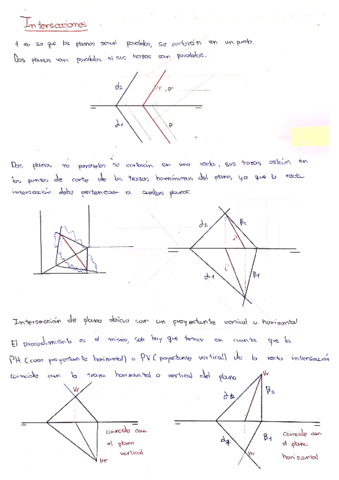 Intersecciones
A no ser que los planos sean paralelos, se cortarán en un punto.
Dos planos son paralelos si sus trazas son paralelas.
α2
r'
α1
Dos planos no paralelos se cortarán en una recta, sus trazas estarán en
los puntos de corte de las trazas homónimas del plano, ya que la recta
intersección debe pertenecer a ambos planos.
α2
β2
α1
β1
Intersección de plano oblicuo con un proyectante vertical u horizontal
El procedimiento es el mismo, solo hay que tener en cuenta que la
PH (caso proyectante horizontal) o PV (proyectante vertical) de la recta intersección
coincide con la traza horizontal o vertical del plano
Vr
Vr
α2
β2
coincide con
el plano
vertical
Hr
α1
β1
Hr
coincide con
el plano
horizontal